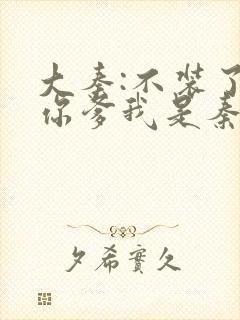 大秦:不装了
你爹我是秦
夕希實久